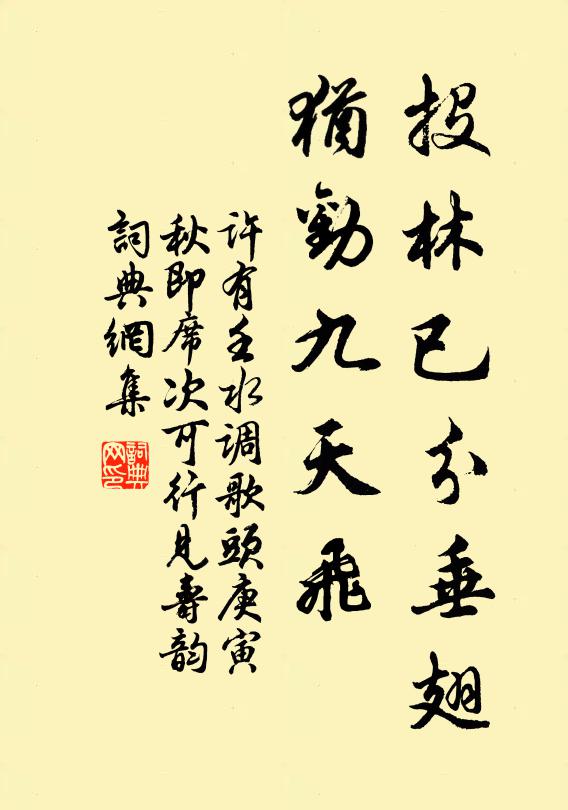 投林已分垂翅
猶勸九天飛
許有壬水调歌頭庚寅
秋即席次可行見壽韵
詞典網集
詞典网印